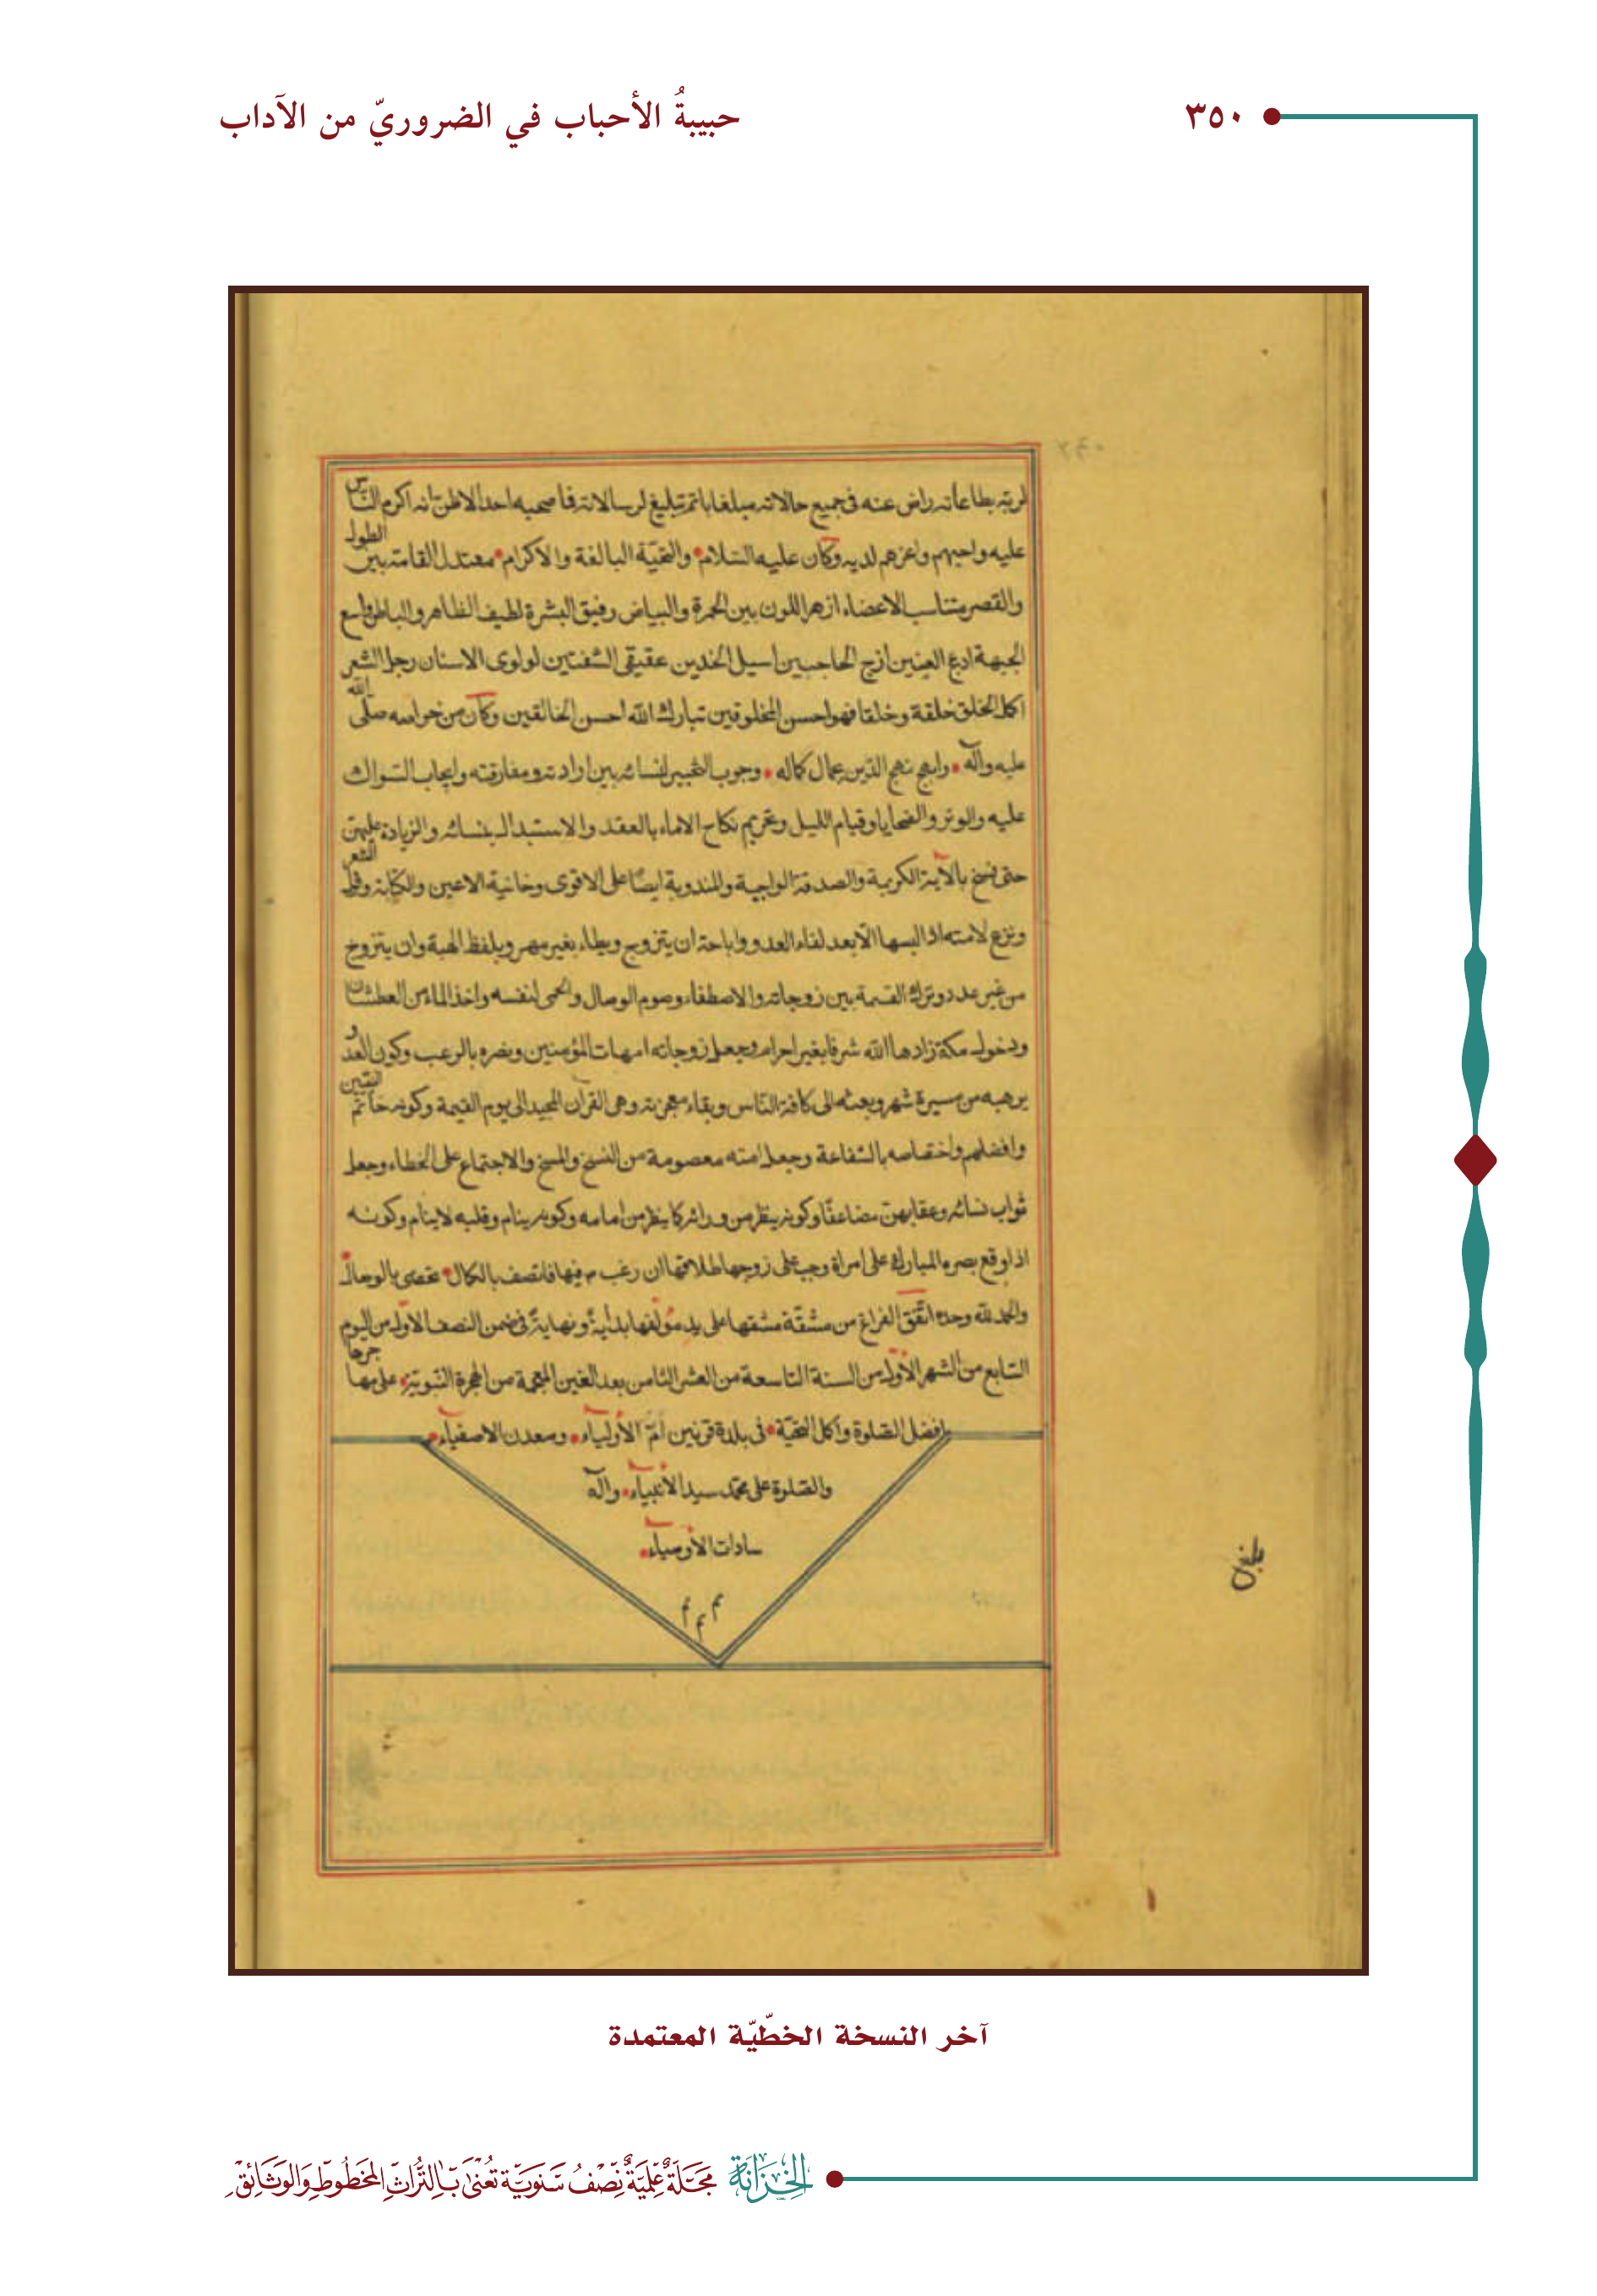 ٣٥٠
حبيبةُ الأحباب في الضروريّ من الآداب
لربّه بطاعاته راض عنه فى جميع حالاته مبلغا باتم تبليغ لرسالاته فما صحبه احد الا ظن انه اكرم النّاس
عليه واحبهم واعزهم لديه وكان عليه السّلام والتحيّة البالغة والاكرام معتدل القامة بين الطول
والقصر متناسب الاعضاء ازهر اللون بين الحمرة والبياض رقيق البشرة لطيف الظاهر والباطن واسع
الجبهة ادعج العينين ازج الحاجبين اسيل الخدين عقيقى الشفتين لولوى الاسنان رجل الشعر
اكمل الخلق خلقة وخلقا فهو احسن المخلوقين تبارك الله احسن الخالقين وكان من خواصه صلى الله
عليه وآله وابهج نهج الدّين بجمال كماله وجوب التخيير لنسائه بين ارادته ومفارقته وايجاب السّواك
عليه والوتر والضحايا وقيام الليل وتحريم نكاح الاماء بالعقد والاستبدال بنسائه والزيادة عليهنّ
حتى نسخ بالآية الكريمة والصدقة الواجبة والمندوبة ايضًا على الاقوى وخائنة الاعين والكتابة وقول الشعر
ونزع لامته اذا لبسها الّا بعد لقاء العدو واباحة ان يتزوج ويطاء بغير مهر وبلفظ الهبة وان يتزوج
من غير عدد وترك القسمة بين زوجاته والاصطفاء وصوم الوصال والحمى لنفسه واخذ الماء من العطشان
ودخول مكة زادها الله شرفا بغير احرام وجعل زوجاته امهات المؤمنين ونصره بالرعب وكون العدو
يرهبه من مسيرة شهر وبعثه الى كافة النّاس وبقاء معجزته وهى القرآن المجيد الى يوم القيمة وكونه خاتم النبيين
وافضلهم واختصاصه بالشفاعة وجعل امته معصومة من النسخ والمسخ والاجتماع على الخطاء وجعل
ثواب نسائه وعقابهنّ مضاعفًا وكونه ينظر من ورائه كما ينظر من امامه وكونه ينام وقلبه لا ينام وكونه
اذا وقع بصره المبارك على امراة وجب على زوجها طلاقها ان رغب م فيها فاتصف بالكمال تحصى بالوحال
والحمد لله وحده اتّفق الفراغ من مشقّة مشقها على يد مؤلفها بدايةً ونهايةً فى ضمن النصف الاول من اليوم
السّابع من الشهر الاوّل من السنة التاسعة من العشر الثامن بعد الغين المعجمة من الهجرة النّبويّة على مهاجرها
افضل الصّلوة واكمل التحيّة فى بلدة قزنين امّ الأولياء ومعدن الاصفياء
والصّلوة على محمّد سيد الأنبياء وآله
سادات الأوصياء
م م م
آخر النسخة الخطّيّة المعتمدة
الخِزَانَة مَجَلَّةٌ عِلْمِيَّةٌ نِصْفُ سَنَوِيَّة تُعْنَى بِالتُّرَاثِ المَخْطُوطِ وَالوَثَائِق